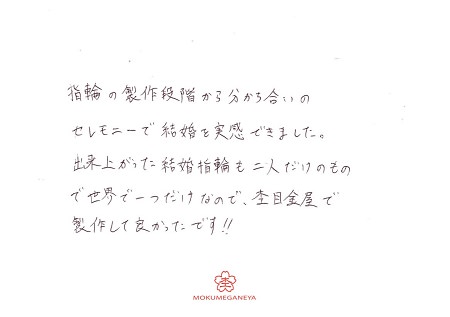 指輪の製作段階から分かち合いの
セレモニーで結婚を実感できました。
出来上がった結婚指輪も二人だけのもの
で世界で一つだけなので、杢目金屋で
製作して良かったです!!
杢
MOKUMEGANEYA